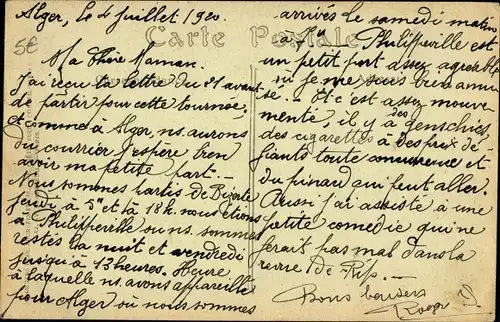 Alger, le 4 juillet 1920.
5€
Carte Postale
Ma Chère Maman.
J'ai reçu ta lettre du 21 avant
de partir pour cette tournée,
et comme à Alger, ns. aurons
du courrier j'espère bien
avoir ma petite part. -
Nous sommes partis de Bizerte
jeudi à 5h et à 18h. nous étions
à Philippeville où ns. sommes
restés la nuit et vendredi
jusqu'à 13 heures. Heure
à laquelle ns. avons appareillé
pour Alger où nous sommes
arrivés le samedi matin
à 7h. Philippeville est
un petit port assez agréable
où je me suis bien amu-
sé. - Et c'est assez mouve-
menté, il y a des
des cigarettes à des prix dé-
fiants toute concurrence et
du pinard qui peut aller.
Aussi j'ai assisté à une
petite comédie qui ne
ferait pas mal dans la
revue de Rip. -
Bons baisers
Roger